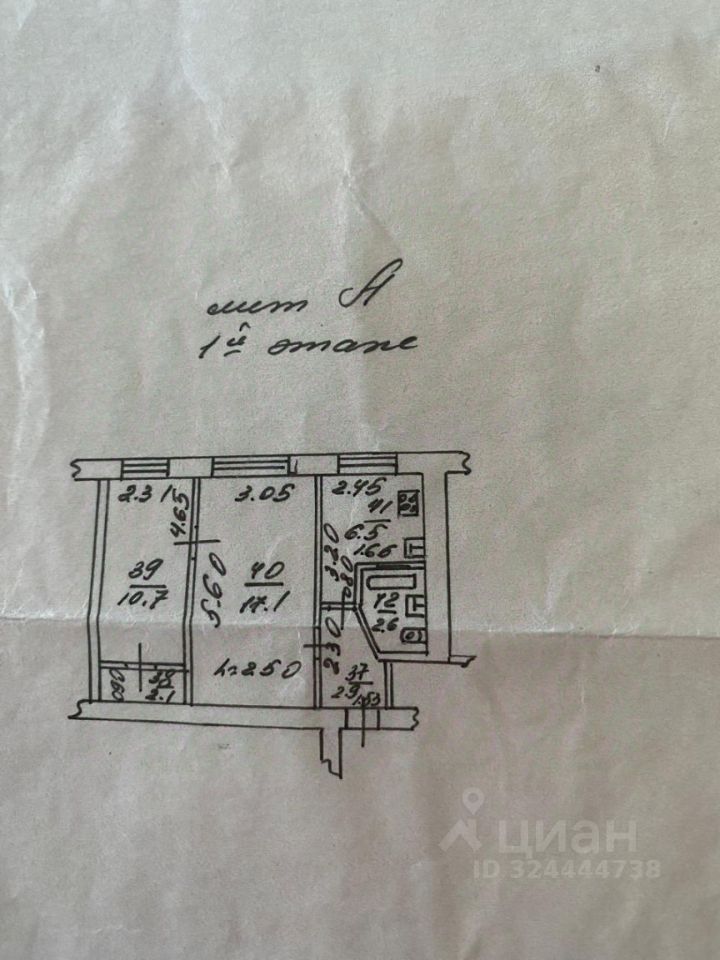 лит А
1й этаж
2.31
4.65
3.05
2.45
41
6.5
1.66
3.20
39
10.7
5.60
40
17.1
0.80
42
2.6
2.30
h=2.50
38
2.1
0.90
37
2.9
1.53
циан
ID 324444738